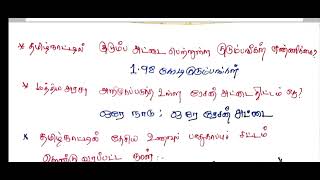 * தமிழ்நாட்டில் குடும்ப அட்டை பெற்றுள்ள குடும்பங்களின் எண்ணிக்கை?
1.98 கோடி குடும்பங்கள்
* மத்திய அரசு அறிமுகப்படுத்த உள்ள ரேசன் அட்டை திட்டம் எது?
ஒரே நாடு : ஒரே ரேசன் அட்டை
* தமிழ்நாட்டில் தேசிய உணவுப் பாதுகாப்புச் சட்டம்
கொண்டு வரப்பட்ட நாள் :-